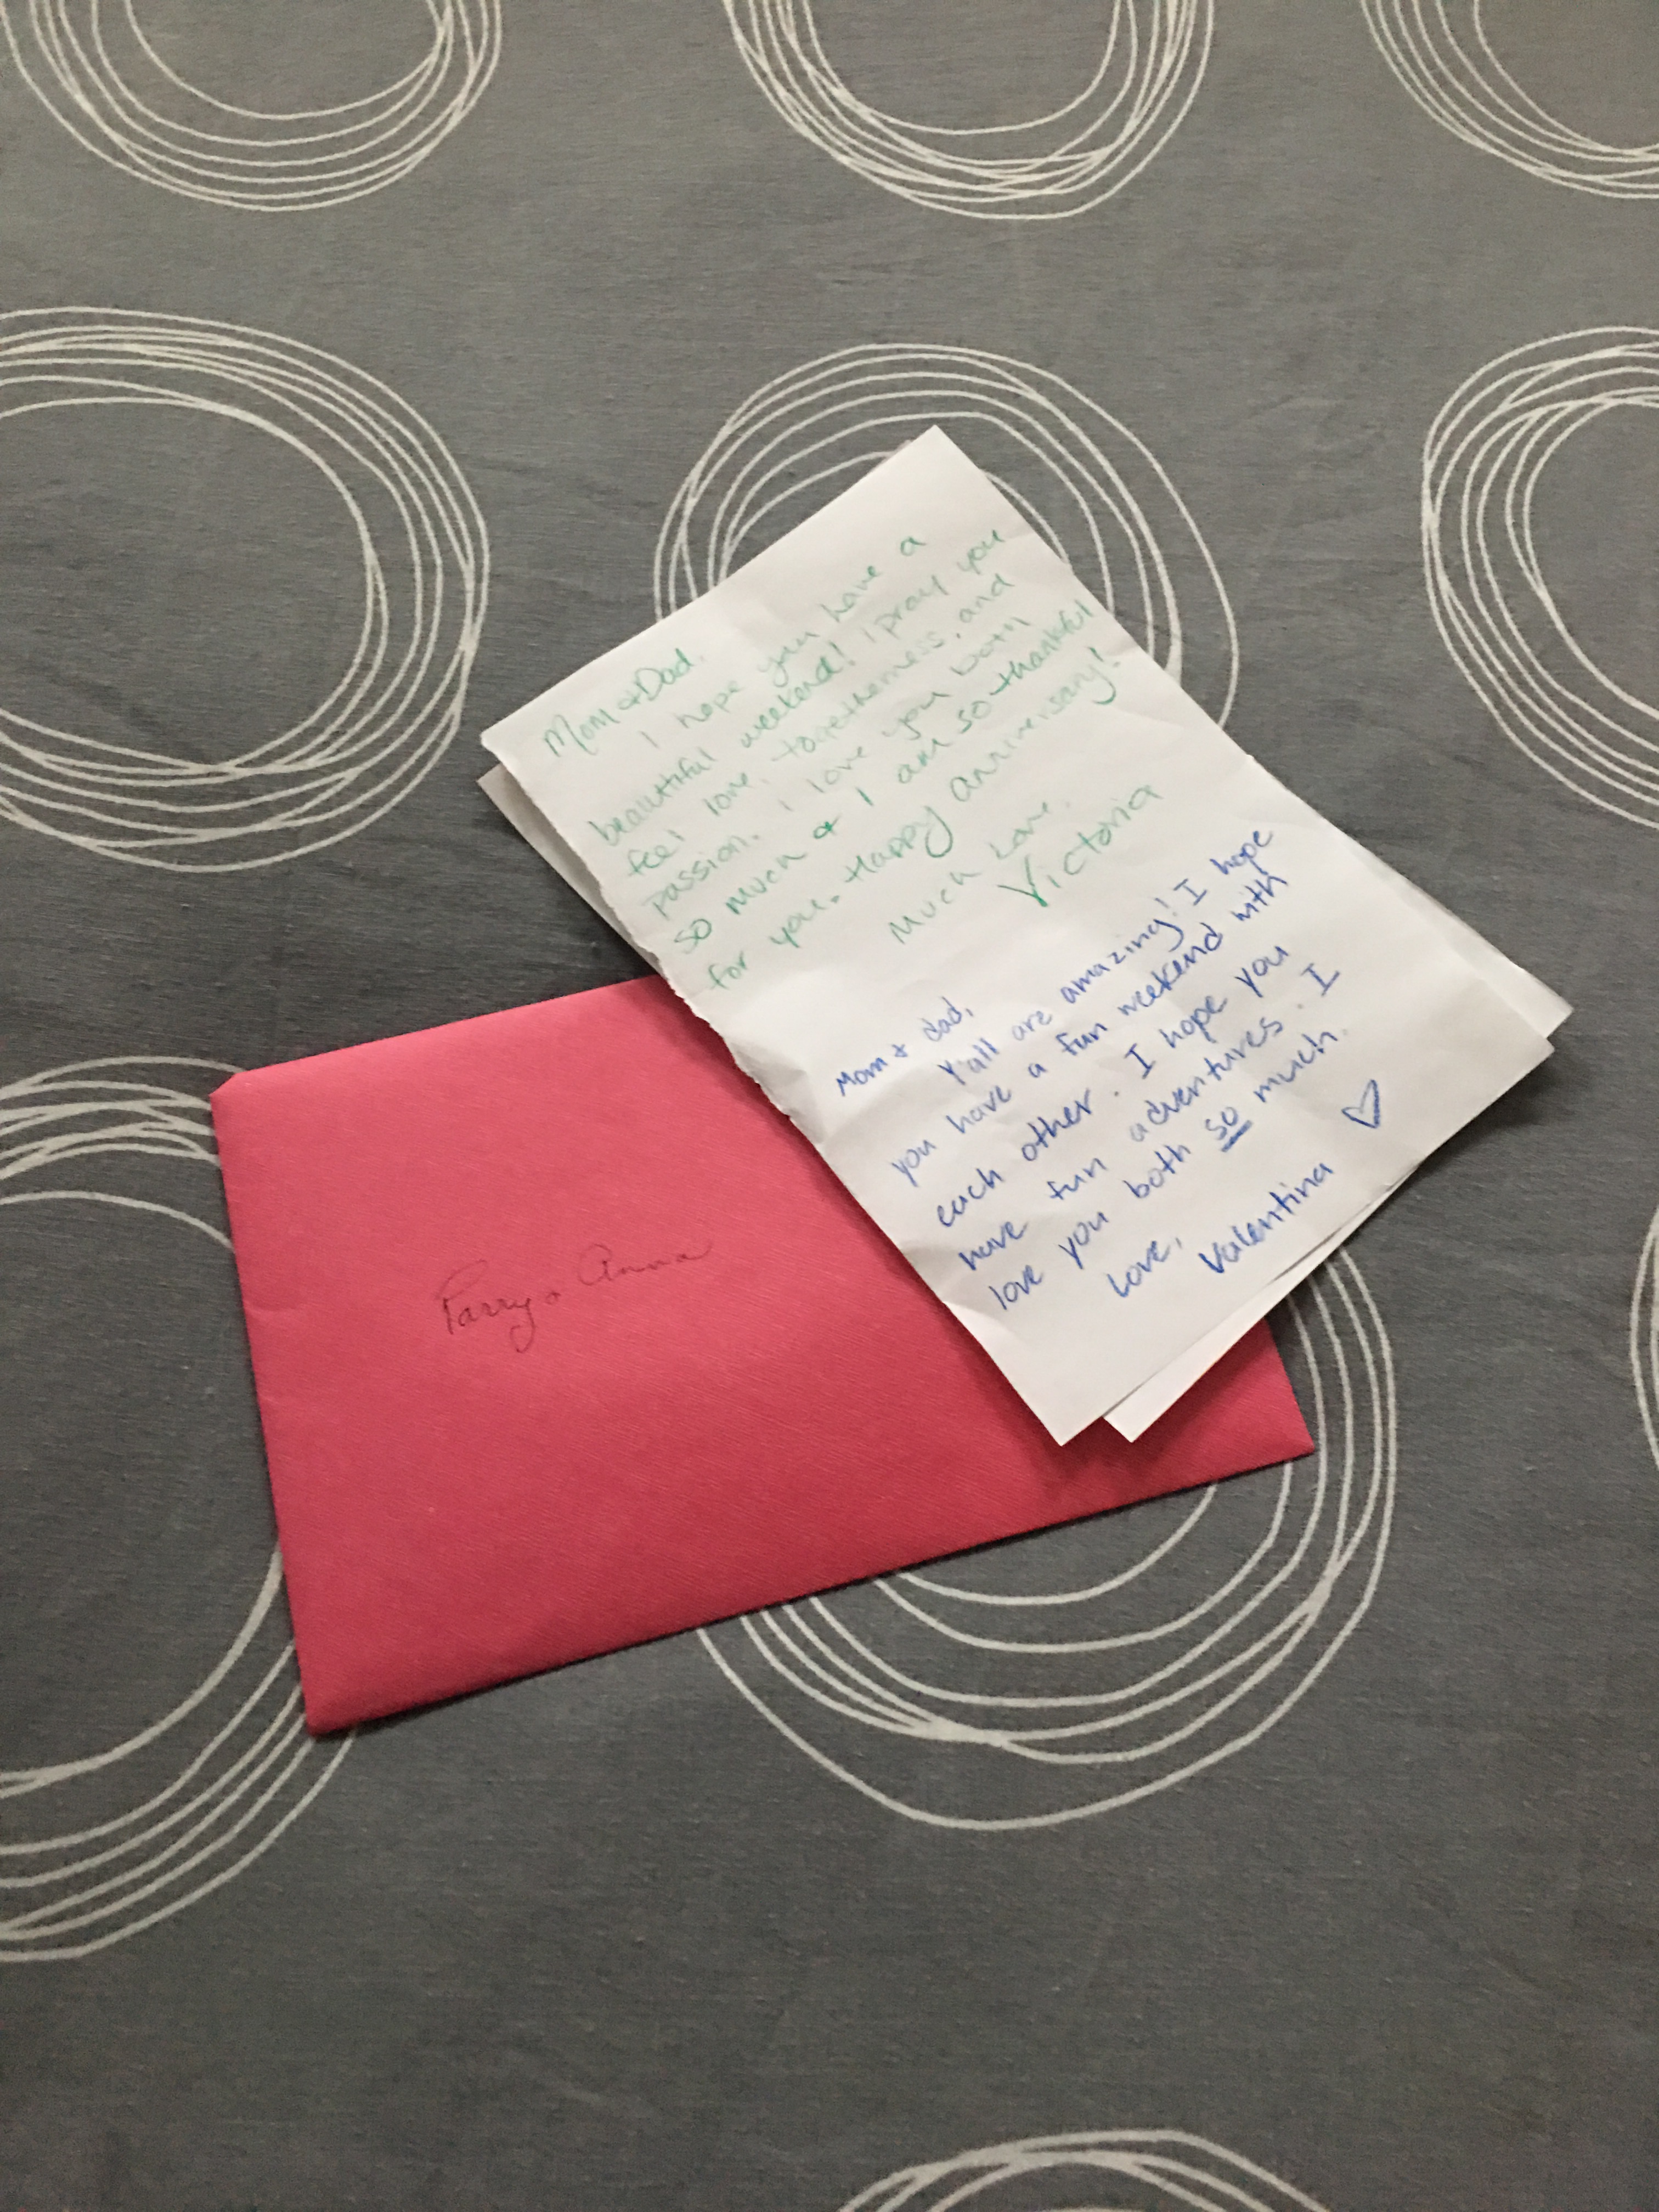 Mom & Dad,
I hope you have a
beautiful weekend! I pray you
feel love, togetherness, and
passion. I love you both
so much & I am so thankful
for you. Happy anniversary!
Much Love,
Victoria
Mom + dad,
Y'all are amazing! I hope
you have a fun weekend with
each other. I hope you
have fun adventures. I
love you both so much.
Love, Valentina ♡
Parry & Anna